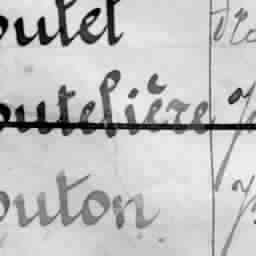 outel
outelière
outon